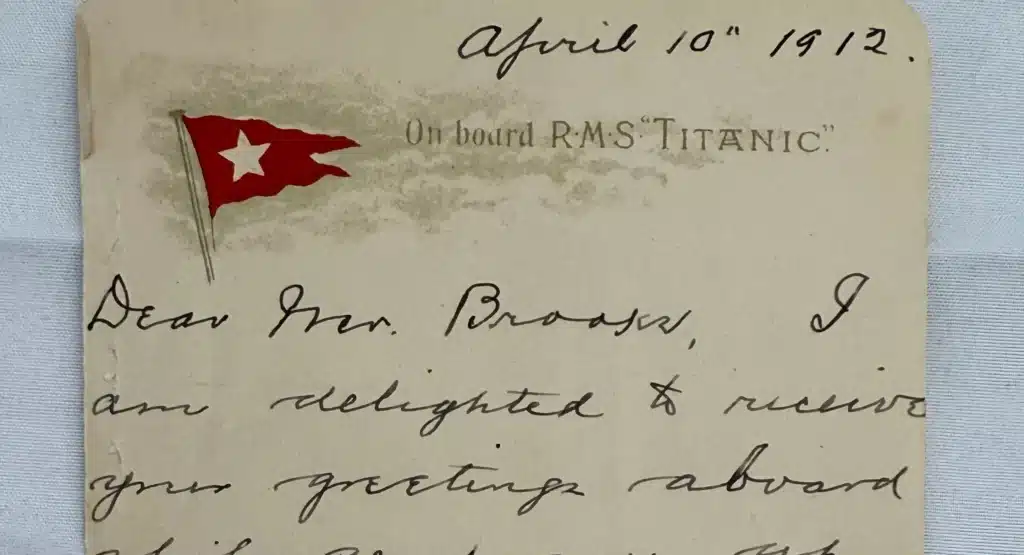 April 10" 1912.
On board R·M·S· "TITANIC".
Dear Mr. Brooks, I
am delighted to receive
your greetings aboard